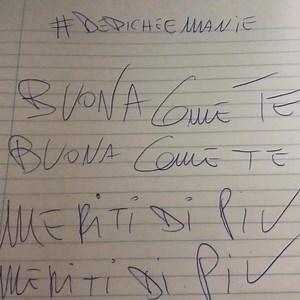 #DEPICHEEMANIE
BUONA COME TE
BUONA COME TE
MERITI DI PIÙ
MERITI DI PIÙ